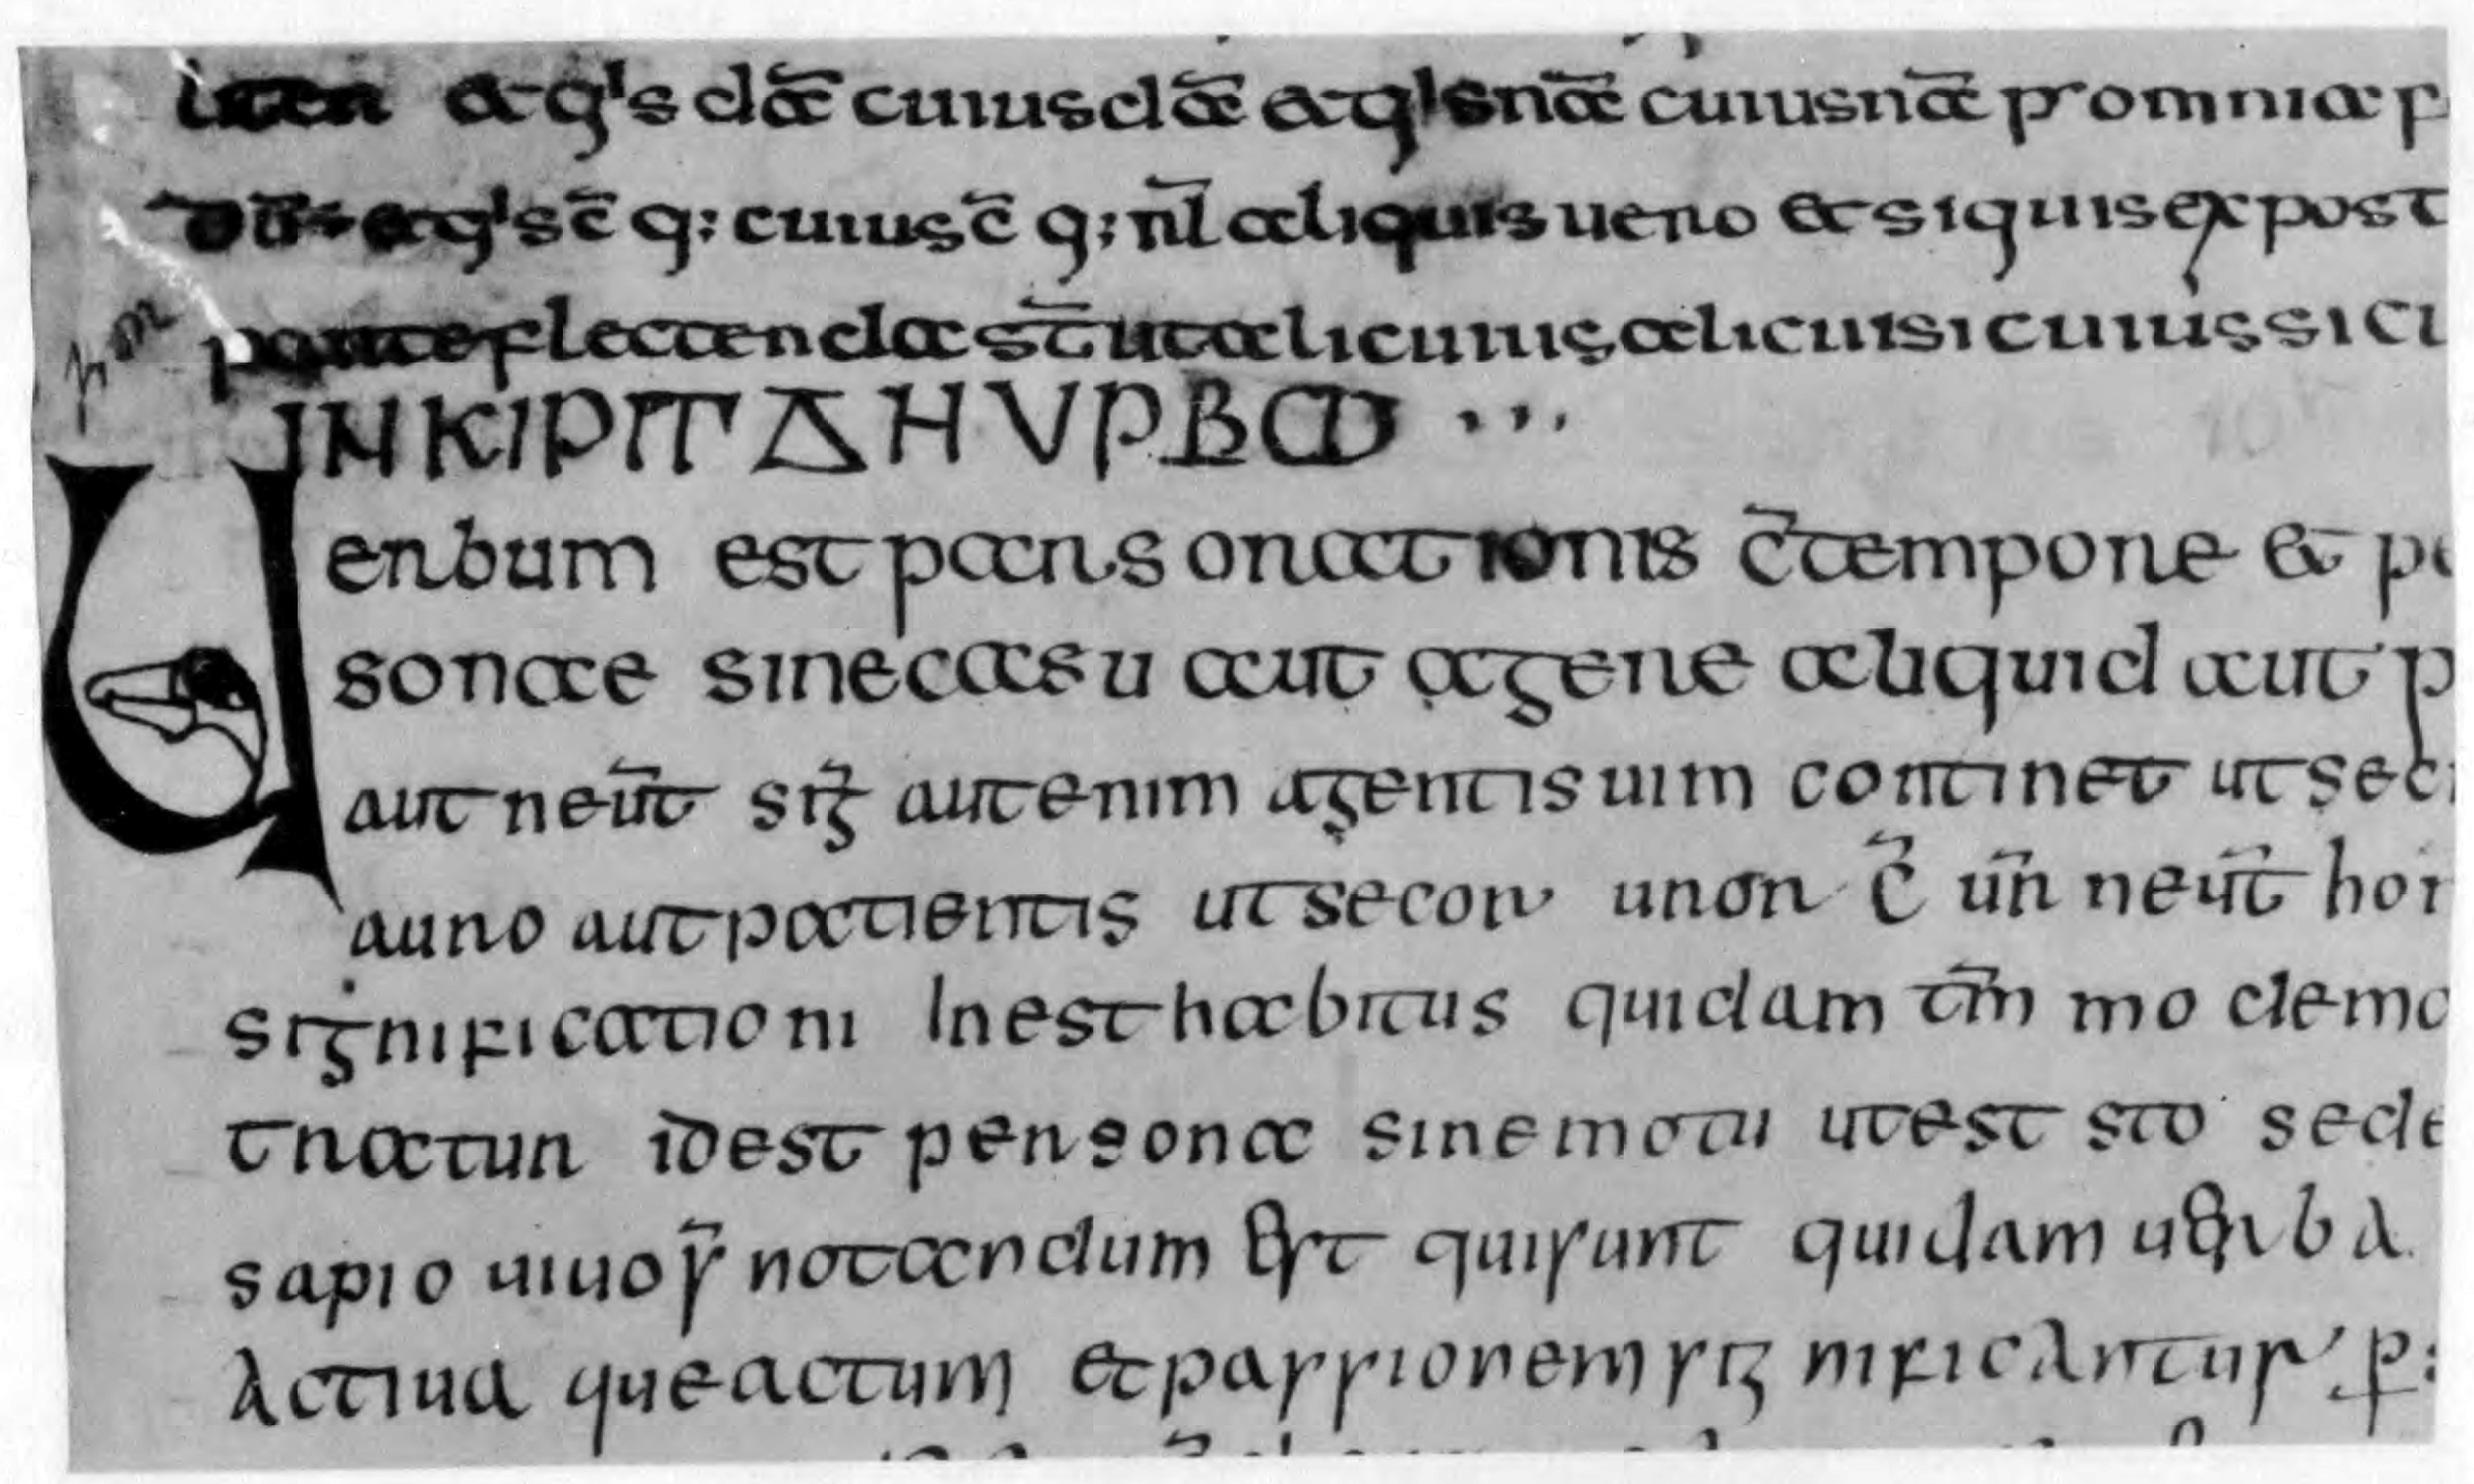 iten & q's dā cuius dā & q'snā cuiusnā pr omnia p
q'sc̄ q; cuiusc̄ q; nl̄ aliquis uero & siquis ex post
parte flectenda st̄ ut alicuius alicui si cuius sicu
INKIPIT ΔH VPBω ...
Uerbum est pars orationis c̄ tempore & pe
sonae sine casu aut agere aliquid aut p
aut neūt siḡ aut enim agentis uim continet ut seco
auro aut patientis ut secor uror c̄ ūr neūt hor
significationi Inest habitus quidam tm̄ mo demo
tratur idest persona sine motu ut est sto sede
sapio uiuo s̄ notandum est qui sunt quidam uerba
actiua que actum & passionem significantur p: